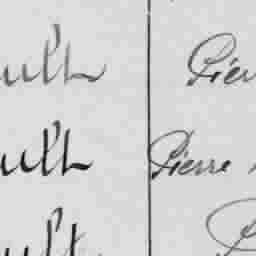 ult Pier
ult Pierre
ult